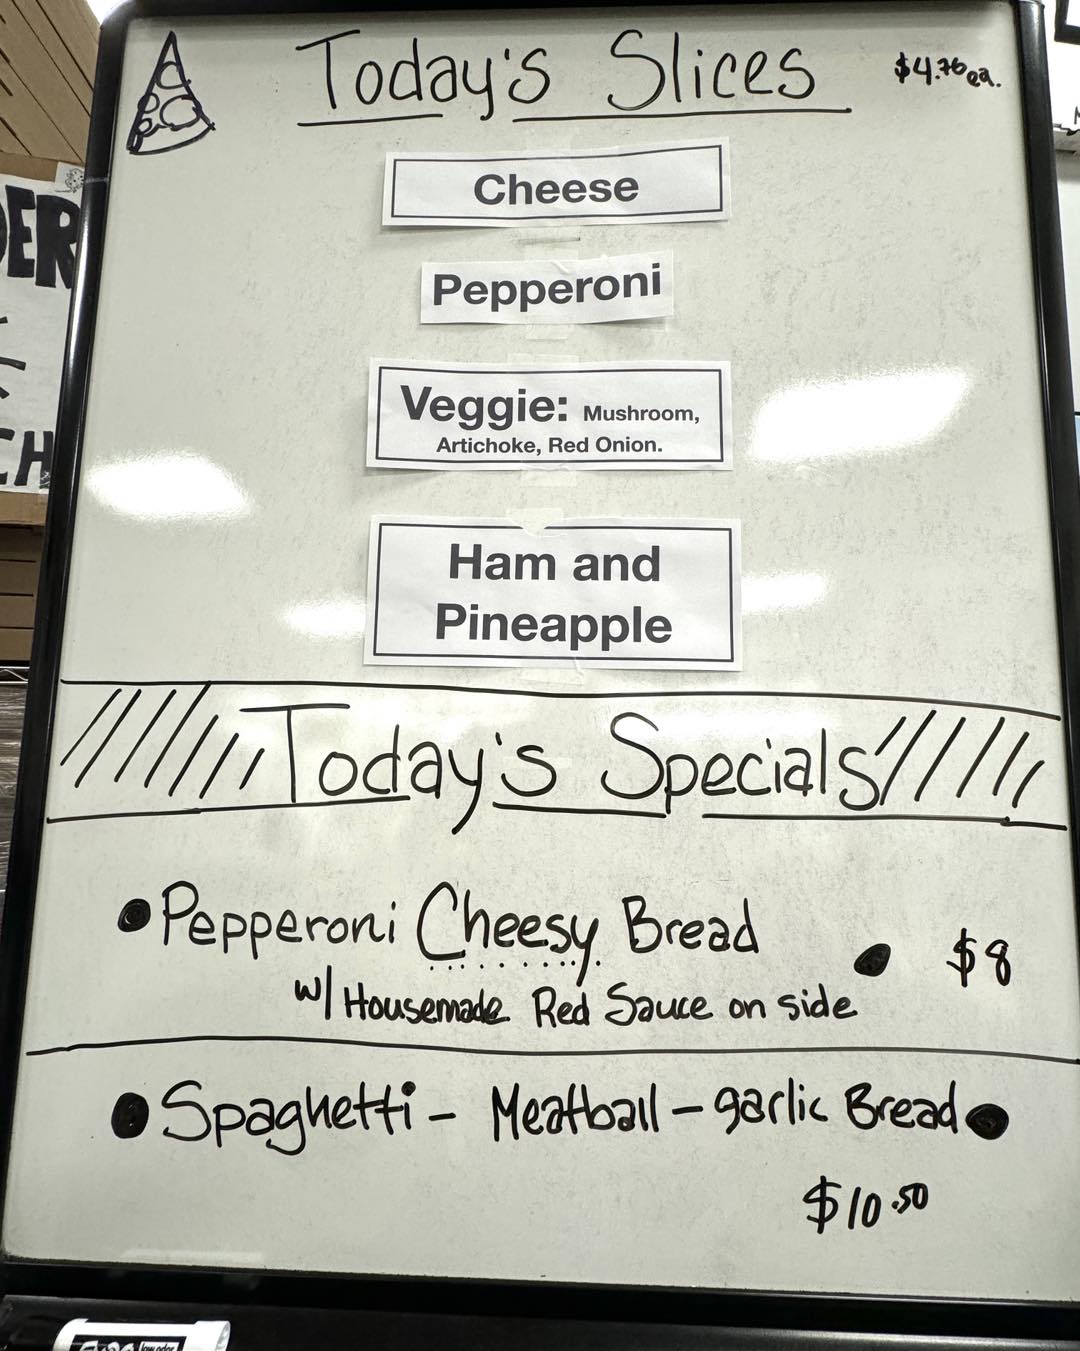 Today's Slices $4.76 ea.
Cheese
Pepperoni
Veggie: Mushroom,
Artichoke, Red Onion.
Ham and
Pineapple
Today's Specials
• Pepperoni Cheesy Bread • $8
w/ Housemade Red Sauce on side
• Spaghetti - Meatball - garlic Bread •
$10.50